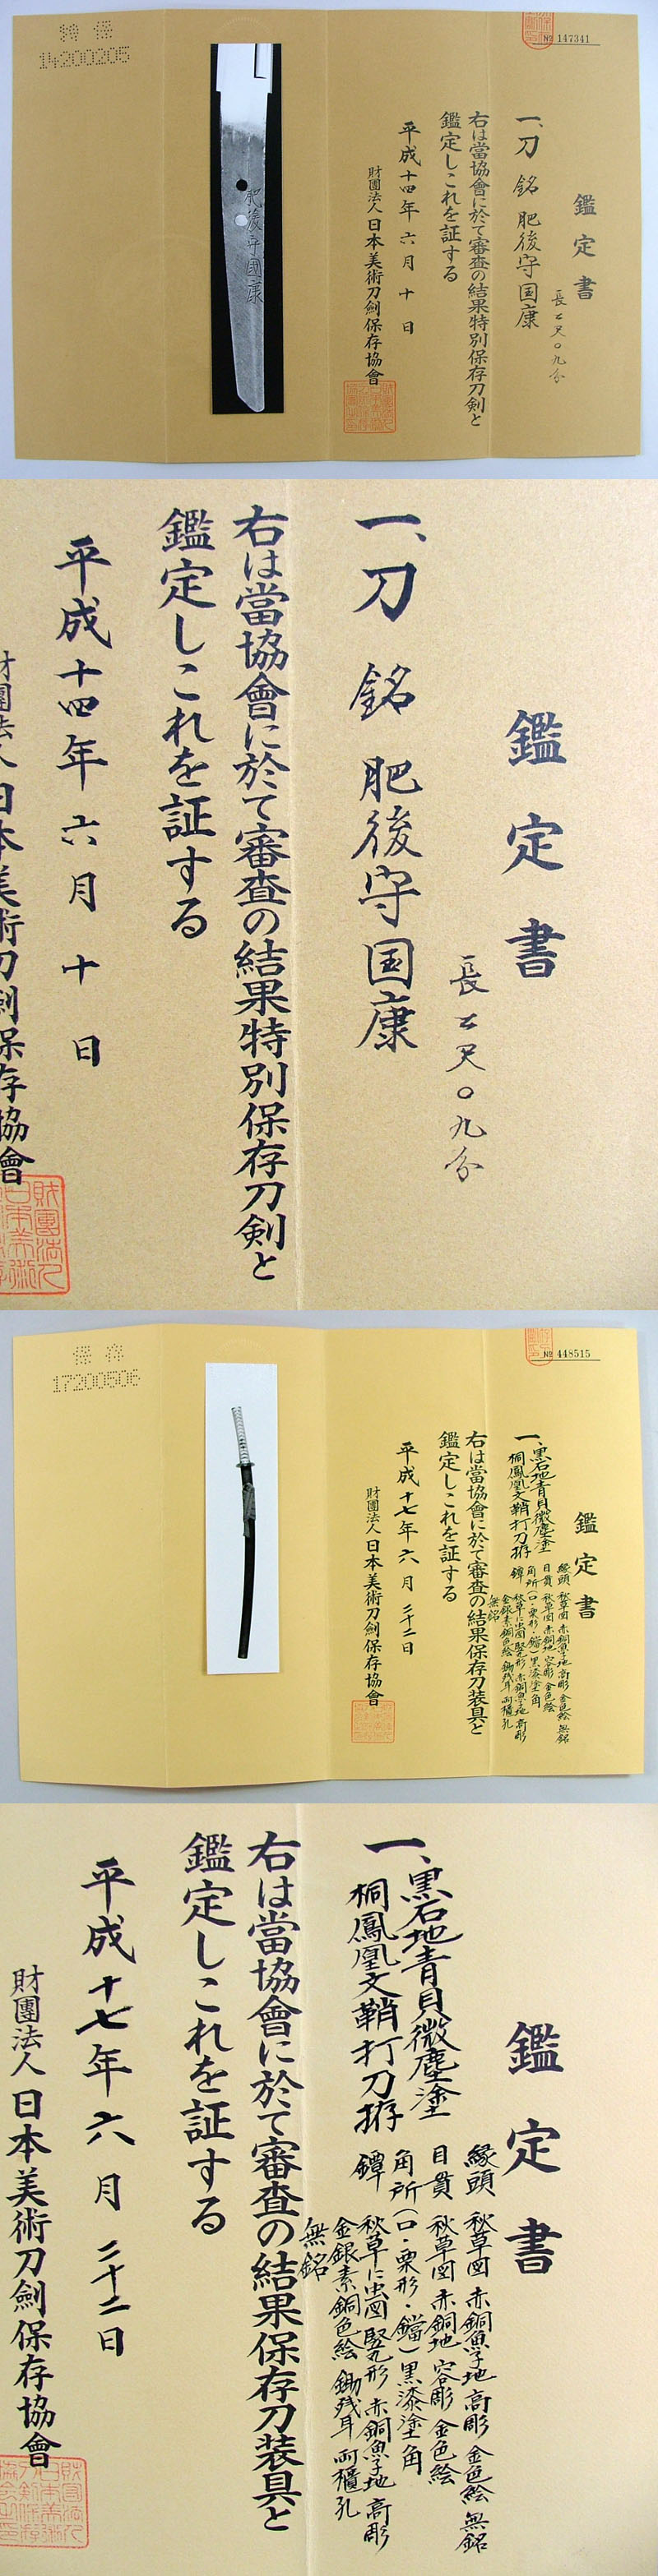 特保
14200205
№ 147341
鑑定書
長弍尺〇九分
一、刀 銘 肥後守国康
右は當協會に於て審査の結果特別保存刀剣と
鑑定しこれを証する
平成十四年六月十日
財團法人日本美術刀劍保存協會
肥後守國康
鑑定書
長弍尺〇九分
一、刀 銘 肥後守国康
右は當協會に於て審査の結果特別保存刀剣と
鑑定しこれを証する
平成十四年六月十日
財團法人日本美術刀劍保存協會
保存
17200506
№ 448515
鑑定書
一、黒石地青貝微塵塗
桐鳳凰文鞘打刀拵
縁頭 秋草図 赤銅魚子地 高彫 金色絵 無銘
目貫 秋草図 赤銅地 容彫 金色絵
角所(口・栗形・鐺)黒漆塗角
鐔 秋草に虫図 竪丸形 赤銅魚子地 高彫
金銀素銅色絵 鋤残耳 両櫃孔
無銘
右は當協會に於て審査の結果保存刀装具と
鑑定しこれを証する
平成十七年六月二十二日
財團法人日本美術刀劍保存協會
鑑定書
一、黒石地青貝微塵塗
桐鳳凰文鞘打刀拵
縁頭 秋草図 赤銅魚子地 高彫 金色絵 無銘
目貫 秋草図 赤銅地 容彫 金色絵
角所(口・栗形・鐺)黒漆塗角
鐔 秋草に虫図 竪丸形 赤銅魚子地 高彫
金銀素銅色絵 鋤残耳 両櫃孔
無銘
右は當協會に於て審査の結果保存刀装具と
鑑定しこれを証する
平成十七年六月二十二日
財團法人日本美術刀劍保存協會